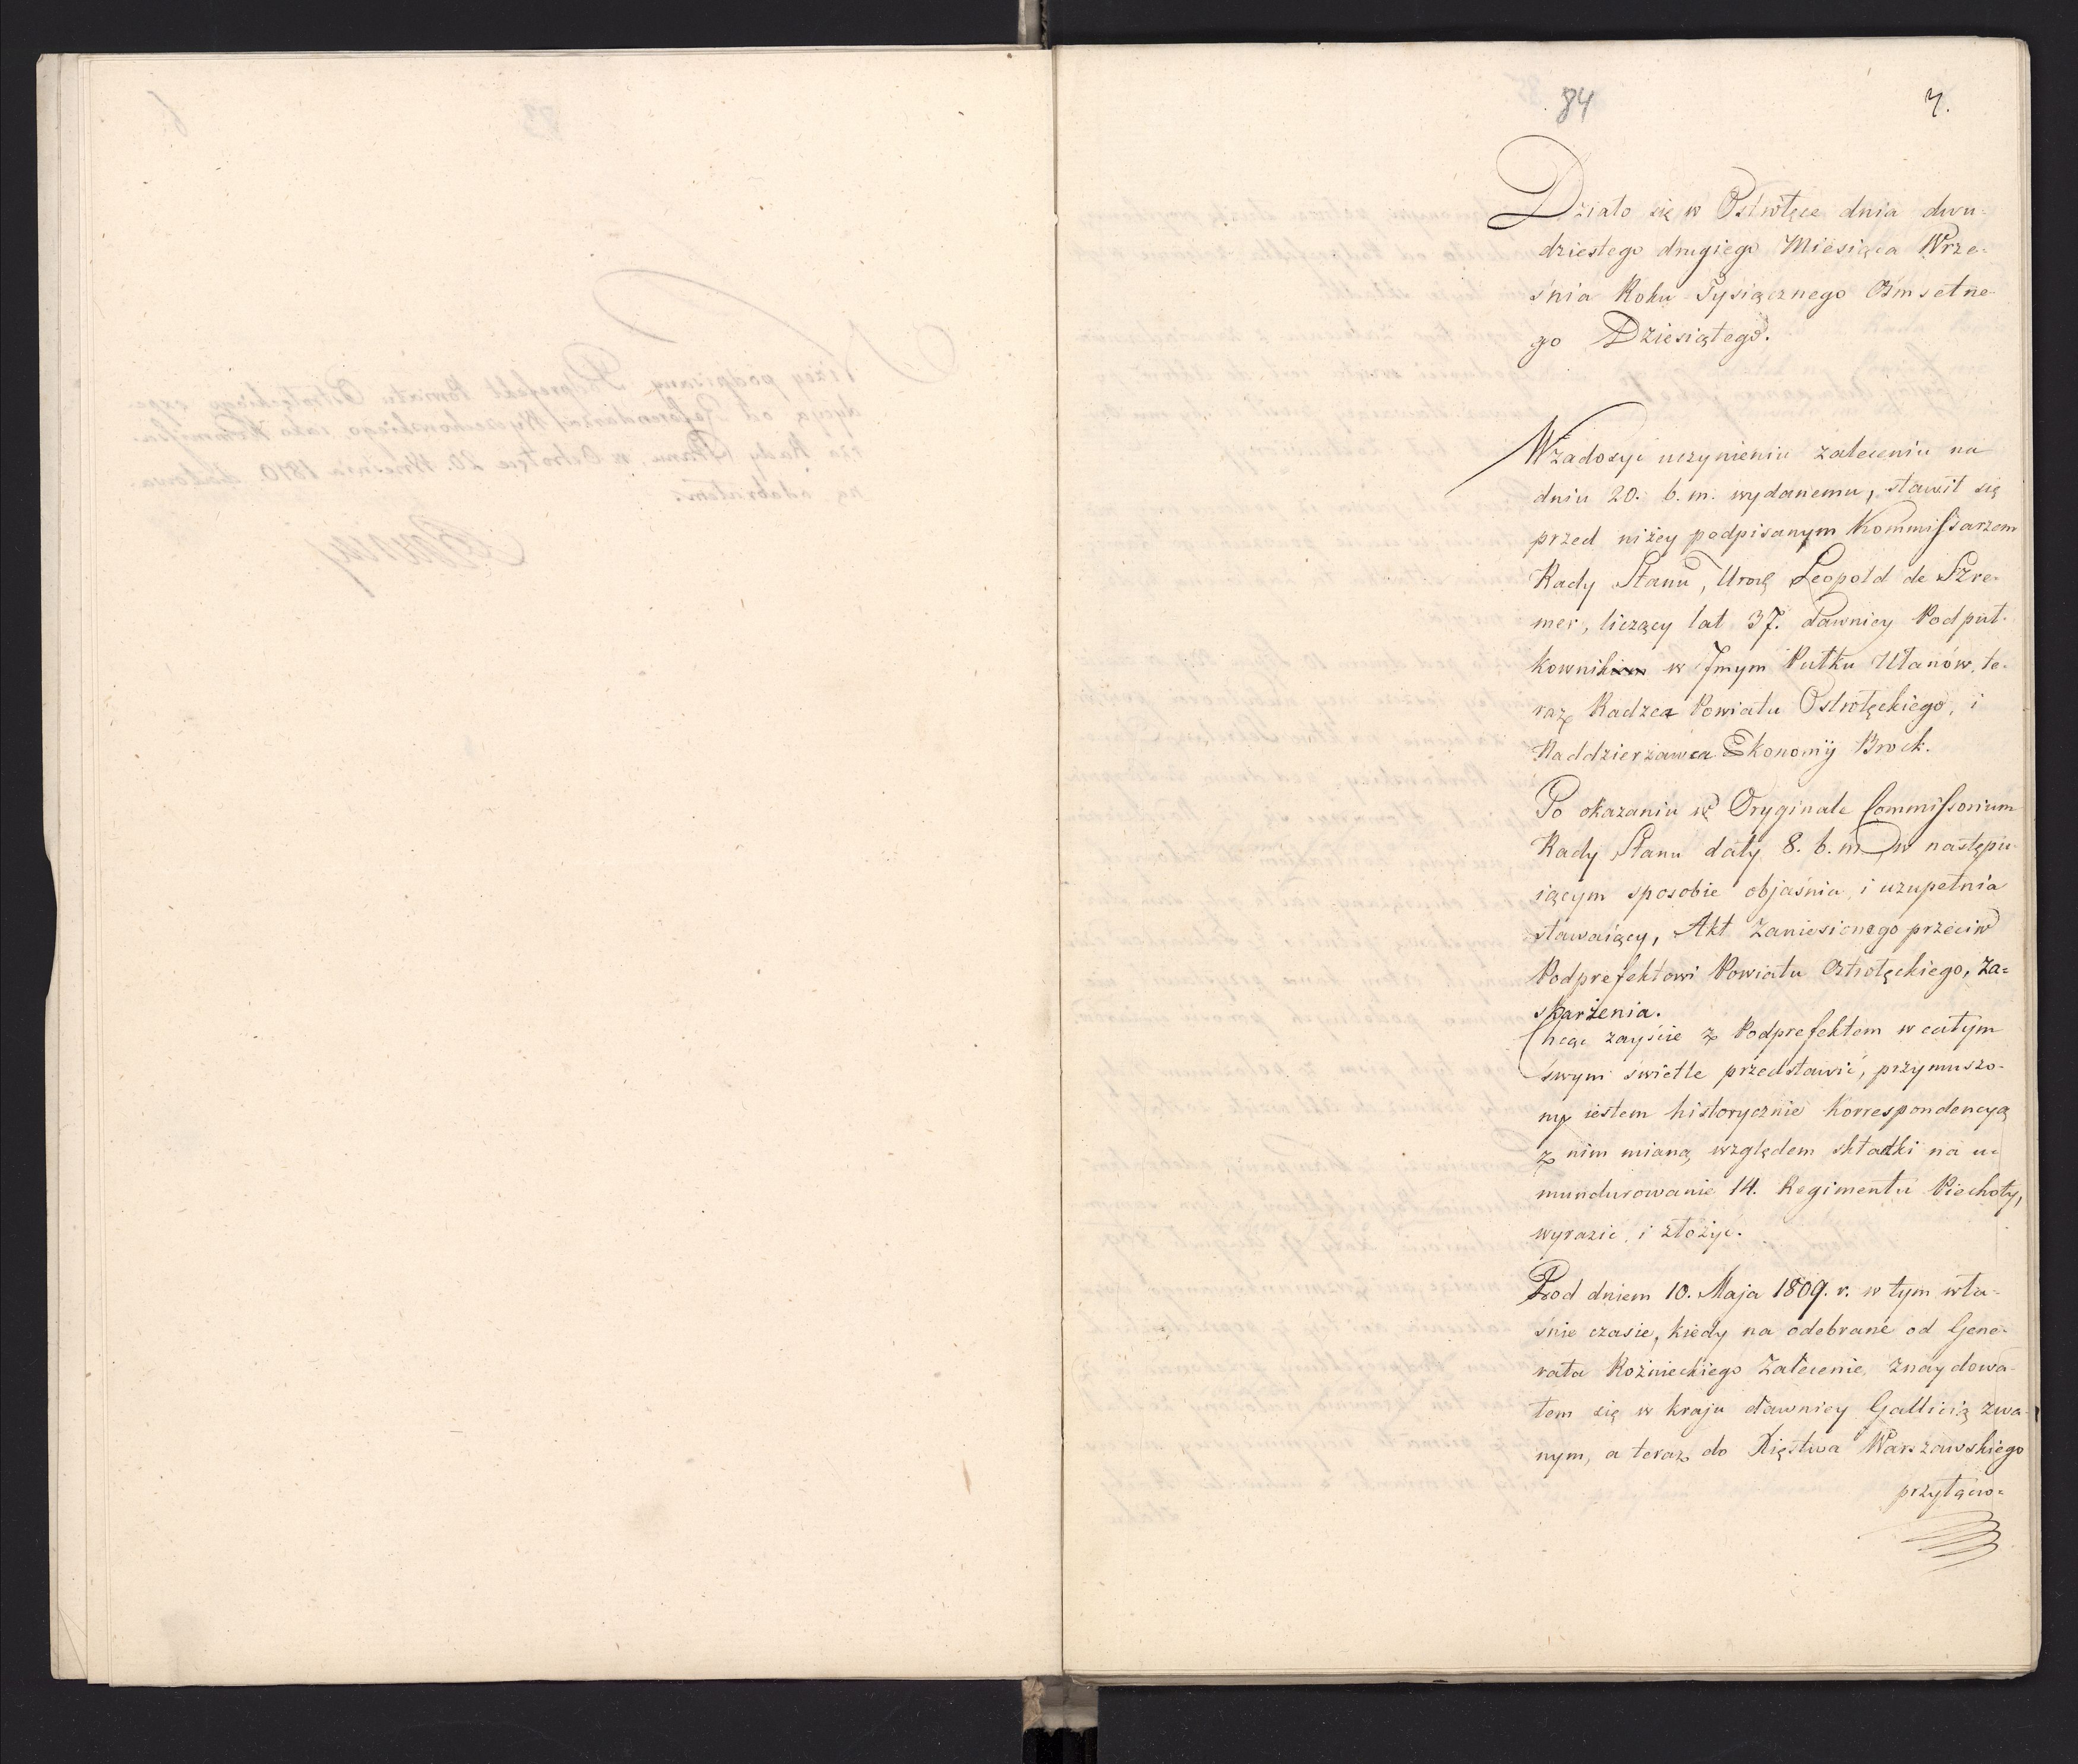 84
7.
Działo się w Ostrołęce dnia dwu-
dziestego drugiego Miesiąca Wrze-
śnia Roku Tysiącznego Ośmsetne-
go Dziesiątego.
W zadosyć uczynieniu zaleceniu na
dniu 20. b. m. wydanemu, stawił się
przed niżey podpisanym Kommissarzem
Rady Stanu, Urod Leopold de Szre-
mer, liczący lat 37. dawniey Podpuł-
kownik w 7mym Pułku Ułanów, te-
raz Radzca Powiatu Ostrołęckiego, i
Naddzierżawca Ekonomij Brok.
Po okazaniu w Oryginale Commissorium
Rady Stanu daty 8. b. m. w następu-
iącym sposobie objaśnia i uzupełnia
stawaiący, Akt Zaniesionego przeciw
Podprefektowi Powiatu Ostrołęckiego, Za=
skarżenia.
Chcąc zayście z Podprefektem w całym
swym świetle przedstawić, przymuszo-
ny iestem historycznie korrespondencyą
z nim mianą względem składki na u-
mundurowanie 14. Regimentu Piechoty,
wyrazić i złożyć.
Pod dniem 10. Maja 1809. r. w tym wła-
śnie czasie, kiedy na odebrane od Gene-
rała Rożnieckiego Zalecenie, znaydowa-
łem się w kraju dawniey Gallicią zwa-
nym, a teraz do Xięstwa Warszawskiego
przyłączo-